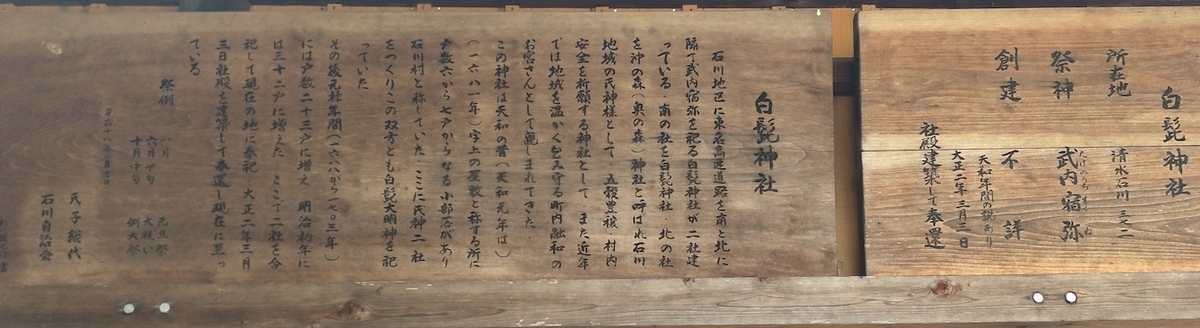 白髭神社
所在地 清水石川 三七二
祭神 武内宿弥
たけのうちすくね
創建 不詳
天和年間の説あり
大正二年三月三日
社殿建築して奉還
白髭神社
石川地区に東名高速道路を南と北に
隔て武内宿弥を祀る白髭神社が二社建
っている 南の社を白髭神社 北の社
を沖の森(奥の森)神社と呼ばれ石川
地域の氏神様として 五穀豊穣 村内
安全を祈願する神社として また近年
では地域を温かく包み守る町内融和の
お宮さんとして親しまれてきた
この神社は天和の昔(天和元年は
一六八一年)字上の屋敷と称する所に
戸数六から七戸からなる小部落があり
石川村と称していた ここに氏神二社
をつくりこの双方とも白髭大明神を祀
っていた
その後元禄年間(一六八八から一七〇三年)
には戸数二十三戸に増え 明治初年に
は三十二戸に増えた ここで二社を合
祀して現在の地に奉祀 大正二年三月
三日社殿を建築して奉還し現在に至っ
ている
祭例
一月 元旦祭
六月下旬 大祓い
十月中旬 例大祭
氏子総代
石川自治会